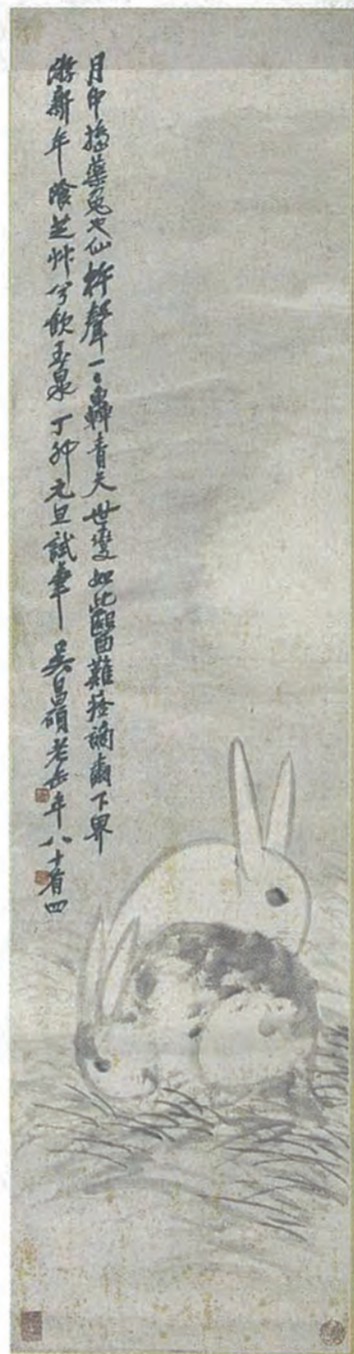 月中搗藥兔也仙杵聲一〻轟青天世變如此醫難痊謫爾下界
游新年唅芝艸兮飲玉泉丁卯元旦試筆吳昌碩老缶年八十有四